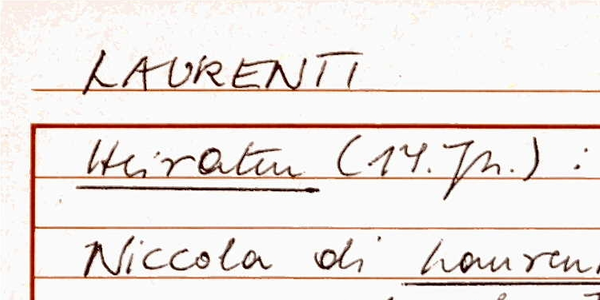 LAURENTI
Heiraten (14. Jh.) :
Niccola di